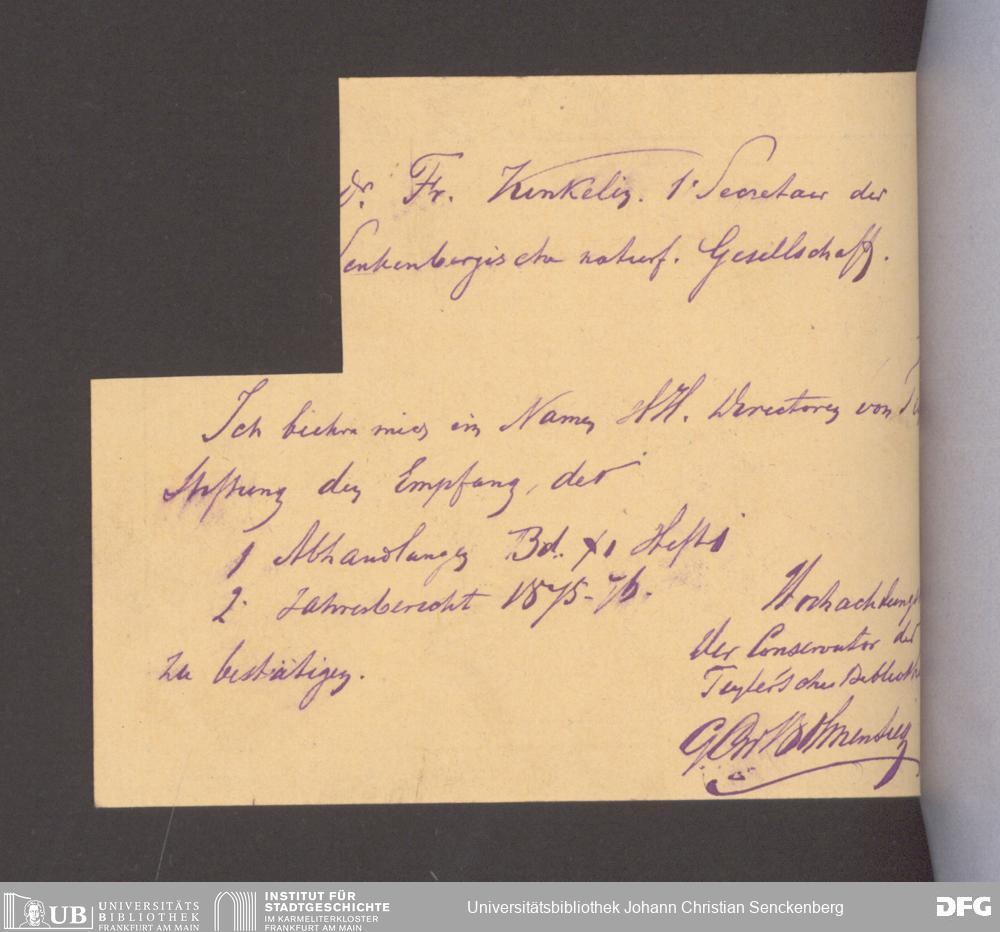 Dr. Fr. Kinkelin. 1r Secretaer der
Senkenbergische naturf. Gesellschaft.
Ich beehre mich im Namen HH. Directoren von
Stiftung den Empfang, der
1 Abhandlungen Bd. XI Heft 1
2. Jahresbericht 1875-76.
zu bestätigen.
Hochachtung
Der Conservator der
Teyler'schen Biblioth
UB UNIVERSITÄTS
BIBLIOTHEK
FRANKFURT AM MAIN
INSTITUT FÜR
STADTGESCHICHTE
IM KARMELITERKLOSTER
FRANKFURT AM MAIN
Universitätsbibliothek Johann Christian Senckenberg
DFG